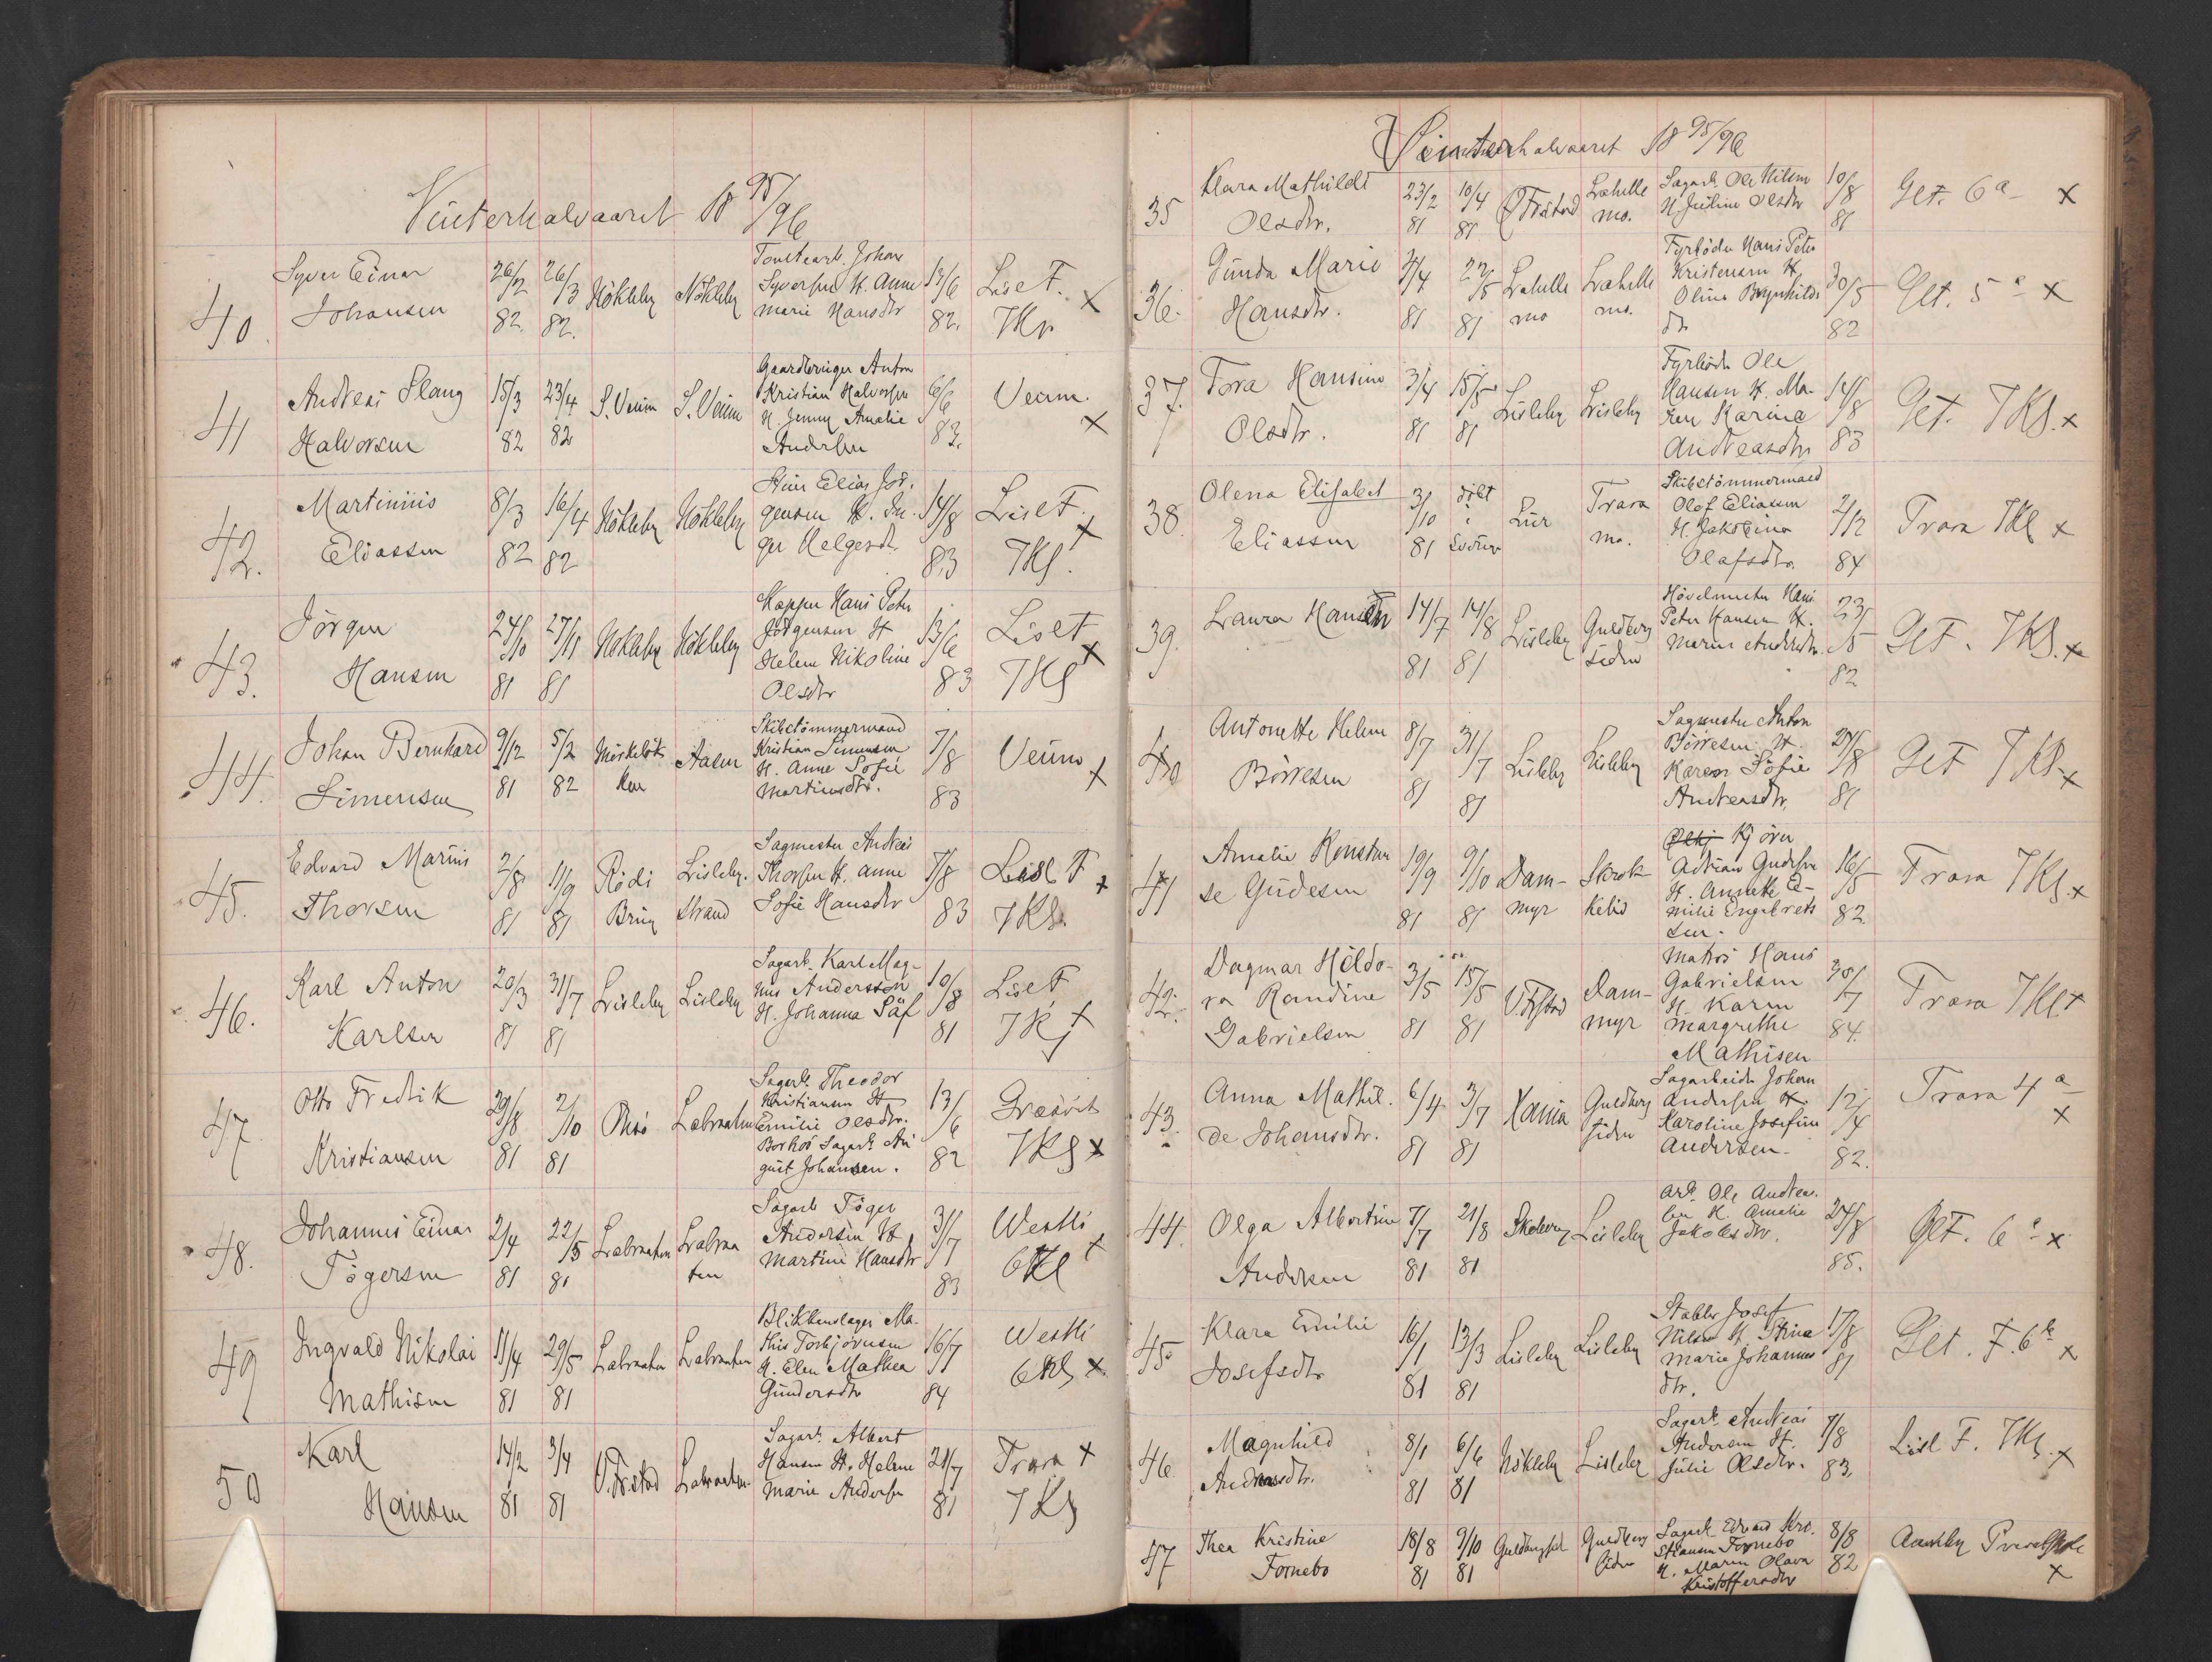 Vinterhalvaaret 18 95/96
40. Syver Einar Johansen 26/2 82. 26/3 82. Nökleby Nökleby Tomtearb. Johan Syversen H. Anne Marie Hansdtr 82. Lisl F. 7 Kl. x
41 Andreas Slang Halvorsen 15/3 82 23/4 82 S. Veum S. Veum Gaardbruger Anton Kristian Halvorsen H. Jenny Amalie Andersen 6/6 83. Veum. x
42. Martinius Eliassen 8/3 82 16/4 82 Nökleby Nökleby Elias Jör- gensen H. In- ger Helgesdtr. 14/8 83 Lisl F. 7 Kl. x
43. Jörgen Hansen 24/10 81 27/11 81 Nökleby Nökleby Hans Peter Jörgensen H Helene Nikoline Olsdtr 13/6 83 Lisl F 7 Kl x
44. Johan Bernhard Simensen 9/12 81 5/2 82 Aasen Skibstömmermand Kristian Simensen H. Anne Sofie Martinsdtr. 7/8 83 Veum x
45. Edvard Marius Thorsen 2/8 81 11/9 81 Rödi Brug Lisleby. Strand Sagmester Andreas Thorsen H. Anne Sofie Hansdtr 7/8 83 Lisl F 7 Kl. x
46. Karl Anton Karlsen 20/3 81 31/7 81 Lisleby Lisleby Sagarb. Karl Mag- nus Andersson H. Johanna Säf 10/8 81 Lisl F 7 Kl x
47 Otto Fredrik Kristiansen 29/8 81 2/10 81 Labraaten Sagarb. Theodor Kristiansen H Emilie Olsdtr. Bor hos Sagarb. Au gust Johansen. 13/6 82 Græsvik 7 Kl x
48. Johannes Einar Tögersen 2/4 81 22/5 81 Labraaten Labraa ten Sagarb Töger Andersen H Martine Hansdtr 31/7 83 Westli 6 Kl x
49 Ingvald Nikolai Mathisen 11/4 81 29/5 81 Labraaten Labraaten Blikkenslager Ma- this Torbjörnsen H. Elen Mathea Gundersdtr 16/7 84 Westli 6 Kl x
50 Karl Hansen 14/2 81 3/4 81 V. Frstad Labraaten Sagarb. Albert Hansen H. Helene Marie Andersen 21/7 81 Trara x 7 Kl
Vinterhalvaaret 18 95/96
35 Klara Mathilde Olsdtr. 23/2 81 10/4 81 Ø Frstad Labelle mo. Sagarb. Ole Nilsen H. Juline Olsdtr 10/8 81 Glt. 6 a x
36. Gunda Marie Hansdtr. 81 81 Labelle mo Labelle mo. Fyrböder Hans Peter Kristensen H Oline Brynhilds dtr 30/5 82 Glt. 5 x
37. Tora Hansine Olsdtr. 3/4 81 15/5 81 Lisleby Lisleby Fyrböder Ole Hansen H. Ma- ren Karina Andreasdtr 14/8 83 Glt. 7 Kl. x
38. Olena Elisabet Eliassen 3/10 81 döbt i Lur Trara mo. Skibstömmermand Olof Eliassen H. Jakobina Olafsdtr. 2/12 84 Trara 7 Kl x
39. Laura Hansdtr 14/7 81 14/8 81 Lisleby Guldberg siden Hövelmester Hans Peter Hansen H. Marie Andersdtr. 23/5 82 Glt. 7 Kl. x
40 Antonette Helene Börresen 8/7 81 31/7 81 Lisleby Lisleby Sagmester Anton Börresen H. Karen Sofie Andreasdtr. 27/8 81 Glt 7 Kl. x
41 Amalie Konstan se Gudesen 19/9 81 9/10 81 Dam- myr Kjörer Adrian Gudesen H. Annette E- milie Engebrets sen. 16/5 82. Trara 7 Kl. x
42. Dagmar Hildo- ra Randine Gabrielsen 3/5 81 15/5 81 V. Frstad Dam- myr Matros Hans Gabrielsen H. Karen Margrethe Mathisen 84. Trara 7 Kl x
43. Anna Mathil. de Johansdtr. 6/4 81 3/7 81 Xania Guldberg siden Sagarbeider Johan Andersen H. Karoline Josefine Andersen. 12/4 82. Trara 4 a x
44. Olga Albertine Andersen 7/7 81 21/8 81 Lisleby Arb. Ole Andrea- sen H. Amalie Jakobsdtr. 27/8 85. Glt. 6 x
45 Klara Emilie Josefsdtr 16/1 81 13/3 81 Lisleby Lisleby Stabler Josef Nilsen H. Stina Marie Johannes dtr. 17/8 81 Glt. F. 6 x
46 Magnhild Andreasdtr. 8/1 81 6/6 81 Nökleby Lisleby Sagarb. Andreas Andersen H. Julie Olsdtr. 7/8 83. Lisl F. 7 Kl. x
47 Thea Kristine Fornebo 18/8 81 9/10 81 Guldbergsid Guldberg siden Sagarb. Edvard Kri- stiansen Fornebo H. Maren Olava Kristoffersdtr 8/8 82 x